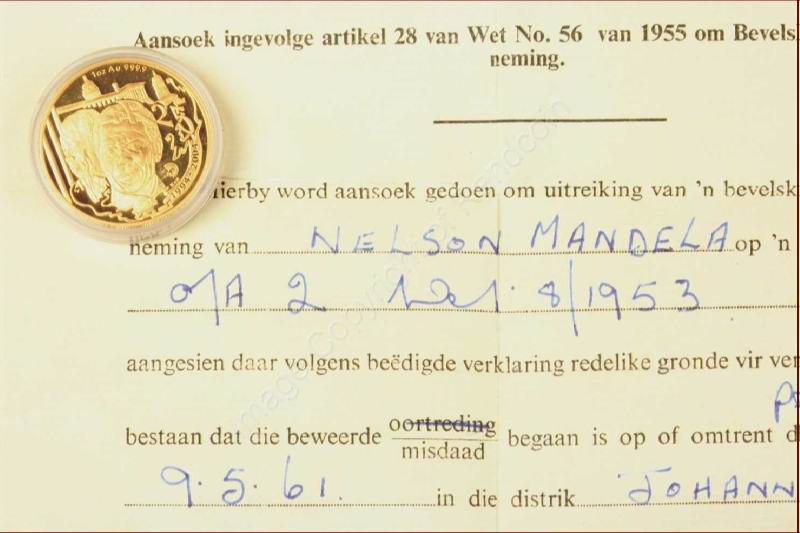 Aansoek ingevolge artikel 28 van Wet No. 56 van 1955 om Bevels
neming.
1oz Au 999.9
1994-2004
Hierby word aansoek gedoen om uitreiking van 'n bevelsk
neming van NELSON MANDELA op 'n
o/A 2 8/1953
aangesien daar volgens beëdigde verklaring redelike gronde vir ver
bestaan dat die beweerde oortreding
misdaad begaan is op of omtrent d
9.5.61. in die distrik JOHANN
Image Copyright of Randcoin